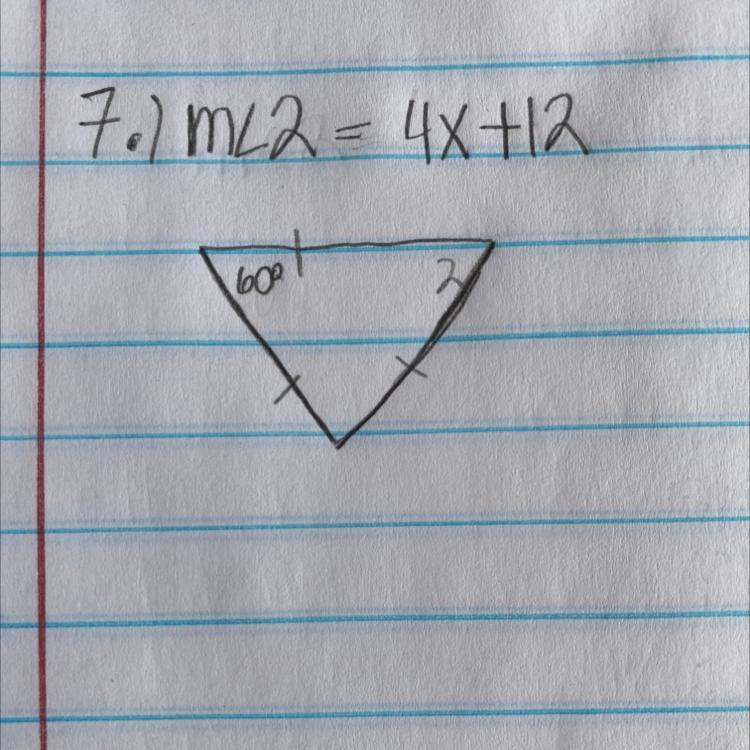 7.) m<2 = 4x+12
60° 2